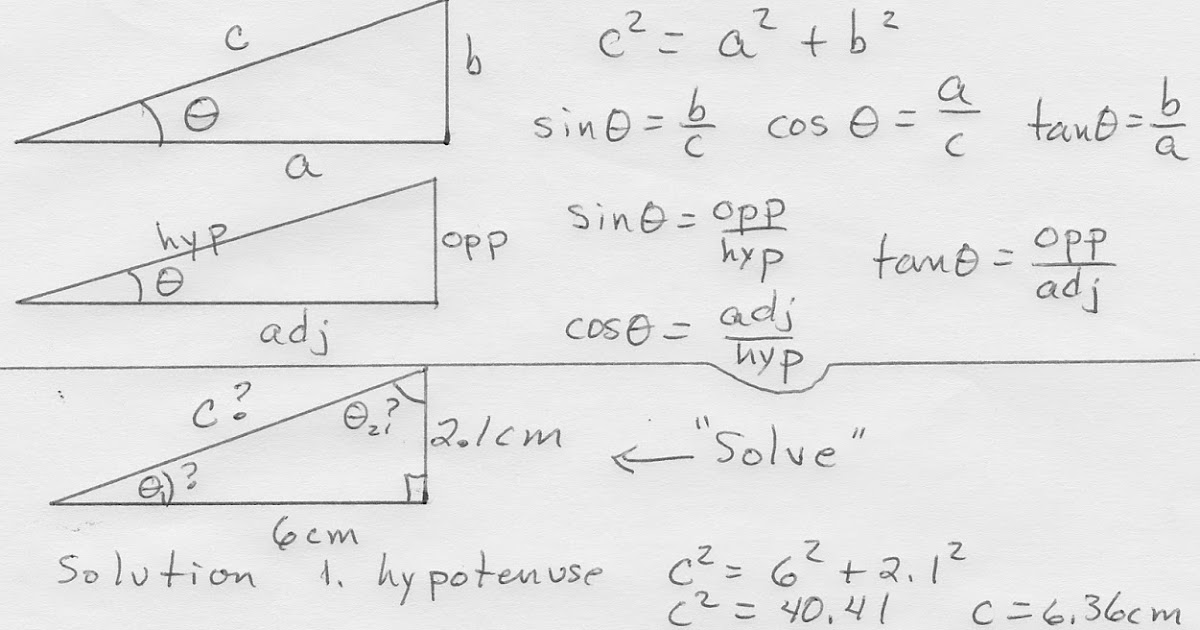 c
b
θ
a
c² = a² + b²
sinθ = b/c cos θ = a/c tanθ = b/a
hyp
opp
θ
adj
sinθ = opp/hyp
tanθ = opp/adj
cosθ = adj/hyp
c?
θ₂?
2.1cm
θ₁)?
6cm
← "Solve"
Solution 1. hypotenuse c² = 6² + 2.1²
c² = 40.41 c = 6.36cm